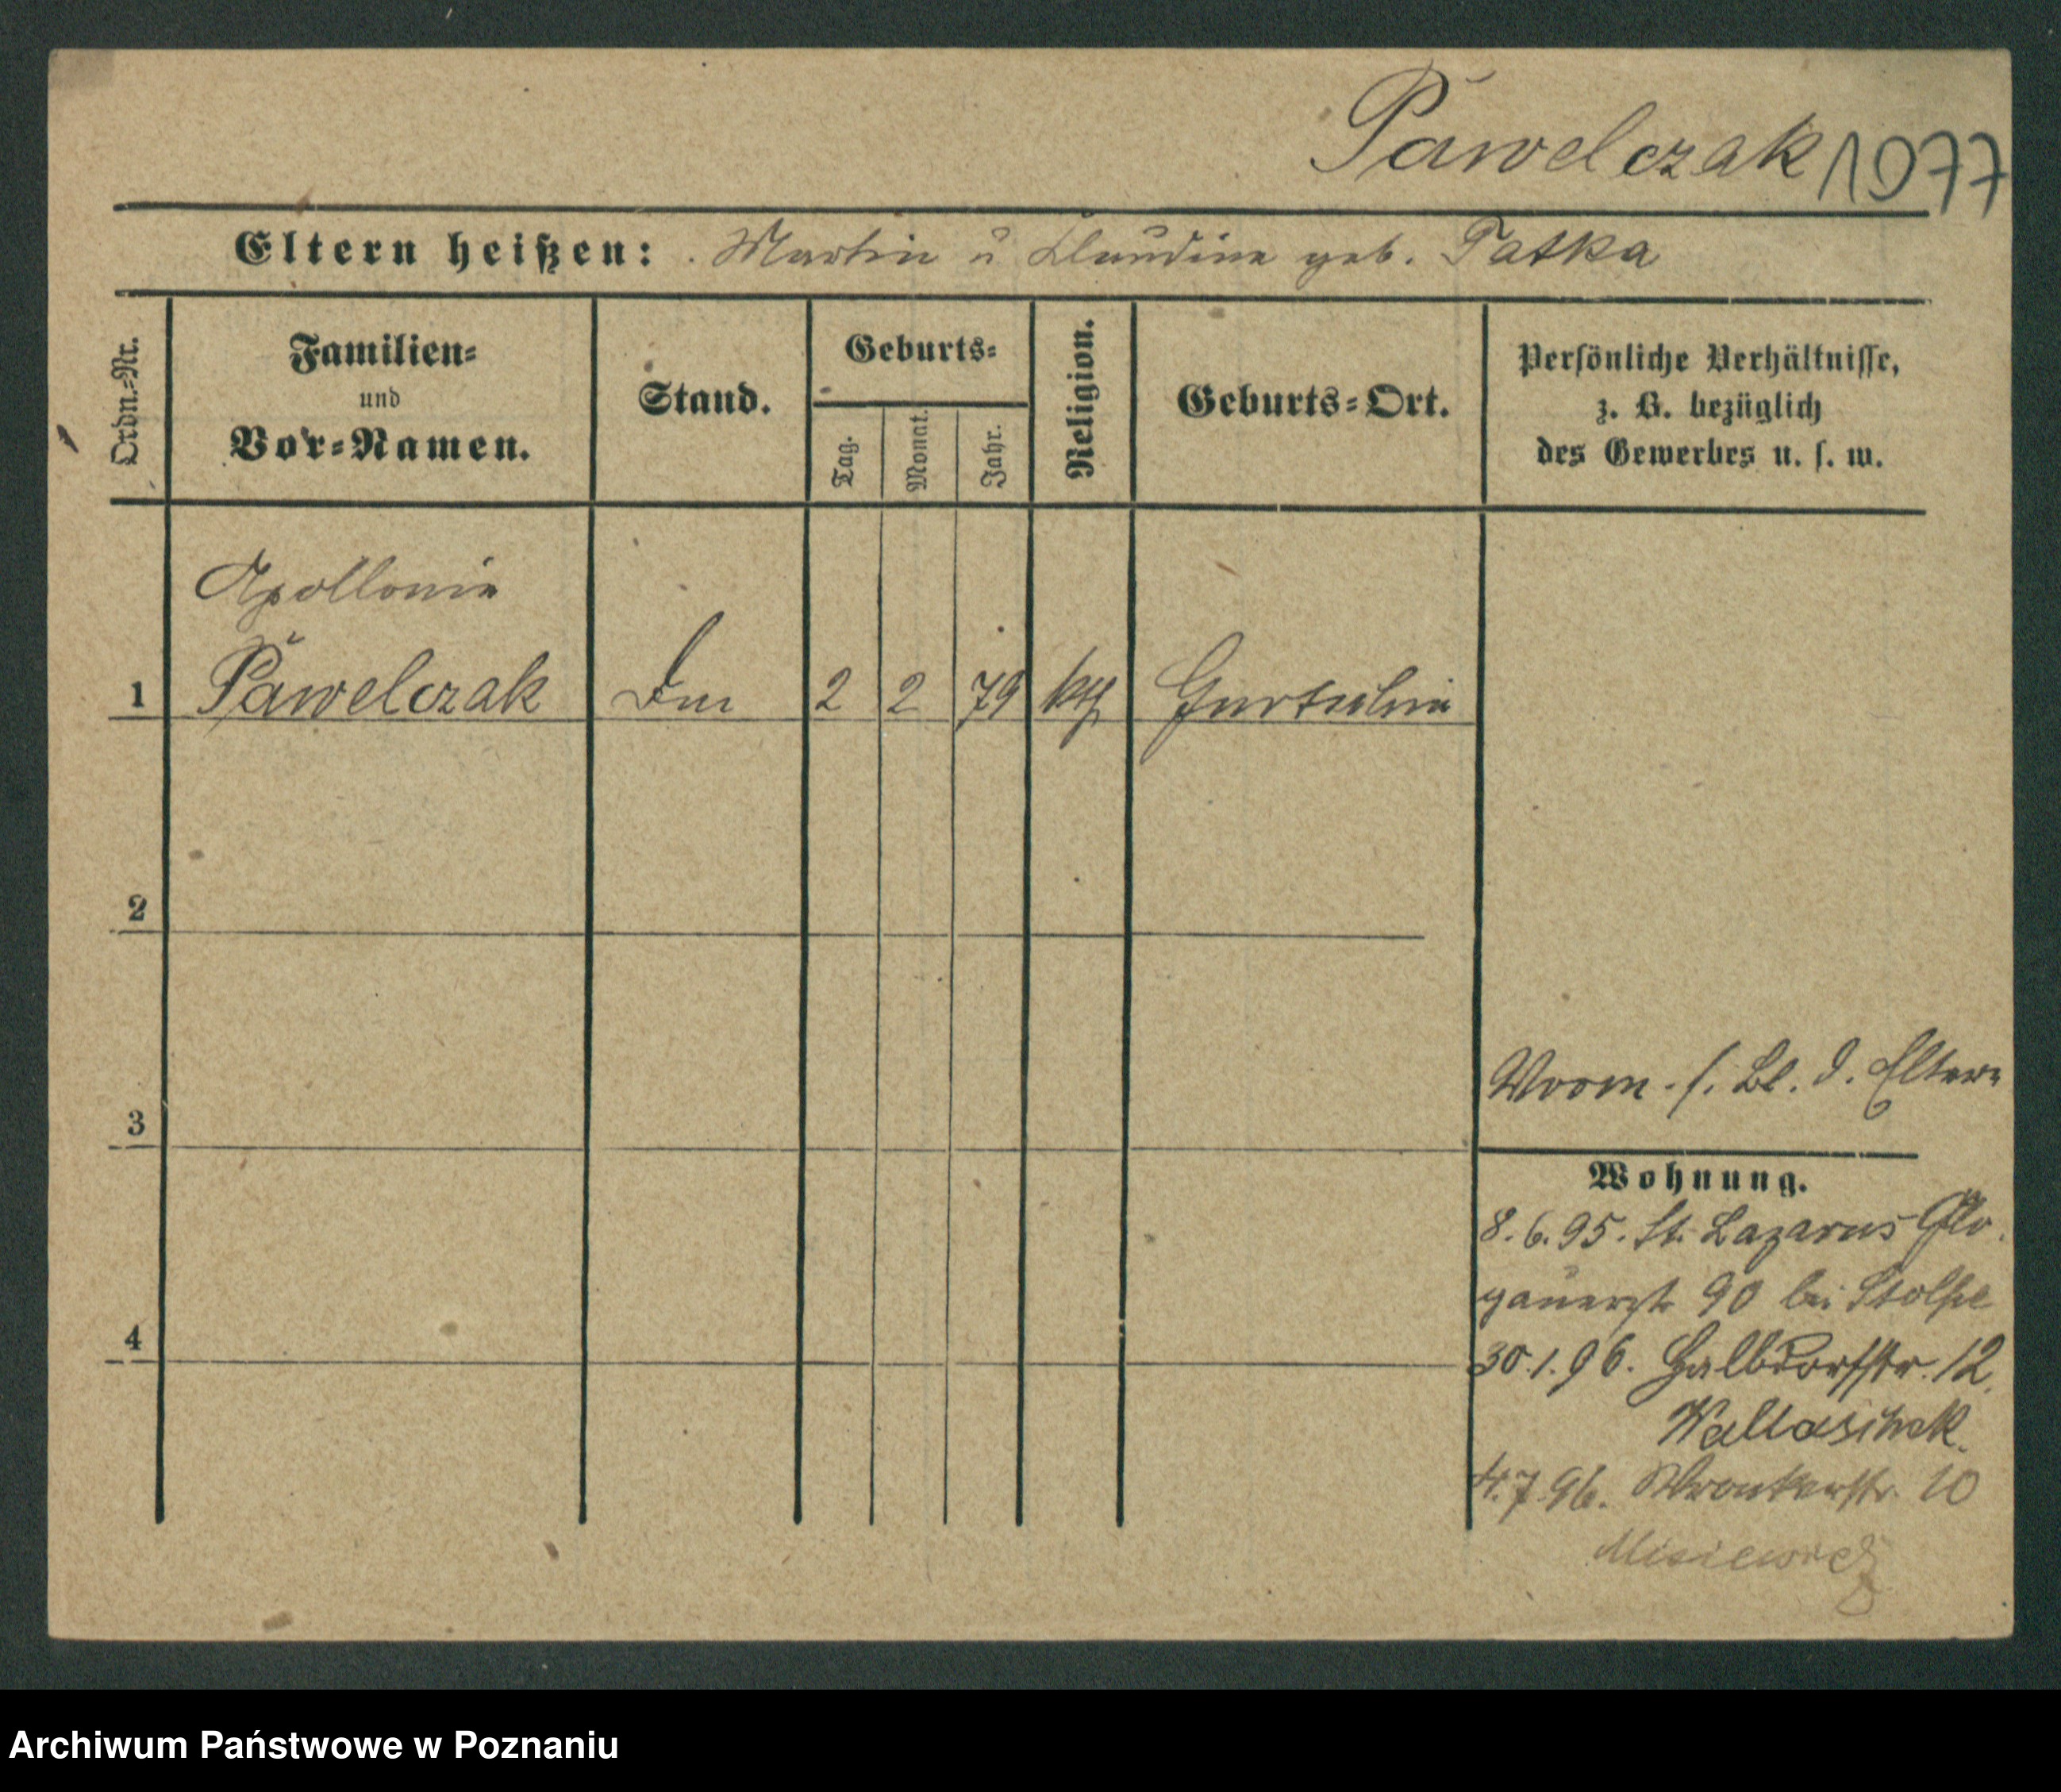 Pawelczak 1077
Eltern heißen: Martin u Klaudina geb. Patka
Ordn.-Nr.
Familien-
und
Vor-Namen.
Stand.
Geburts-
Tag.
Monat.
Jahr.
Religion.
Geburts-Ort.
Persönliche Verhältnisse,
z. B. bezüglich
des Gewerbes u. s. w.
Apollonia
1 Pawelczak 2 2 79 kth
2
3
4
Worm. s. Bl. d. Eltern
Wohnung.
8.6.95. St. Lazarus Glo
gauerstr 90 bei Stolpe
30.1.96. Halbdorfstr. 12.
4.7.96. Wronkerstr. 10
Misiewicz
Archiwum Państwowe w Poznaniu